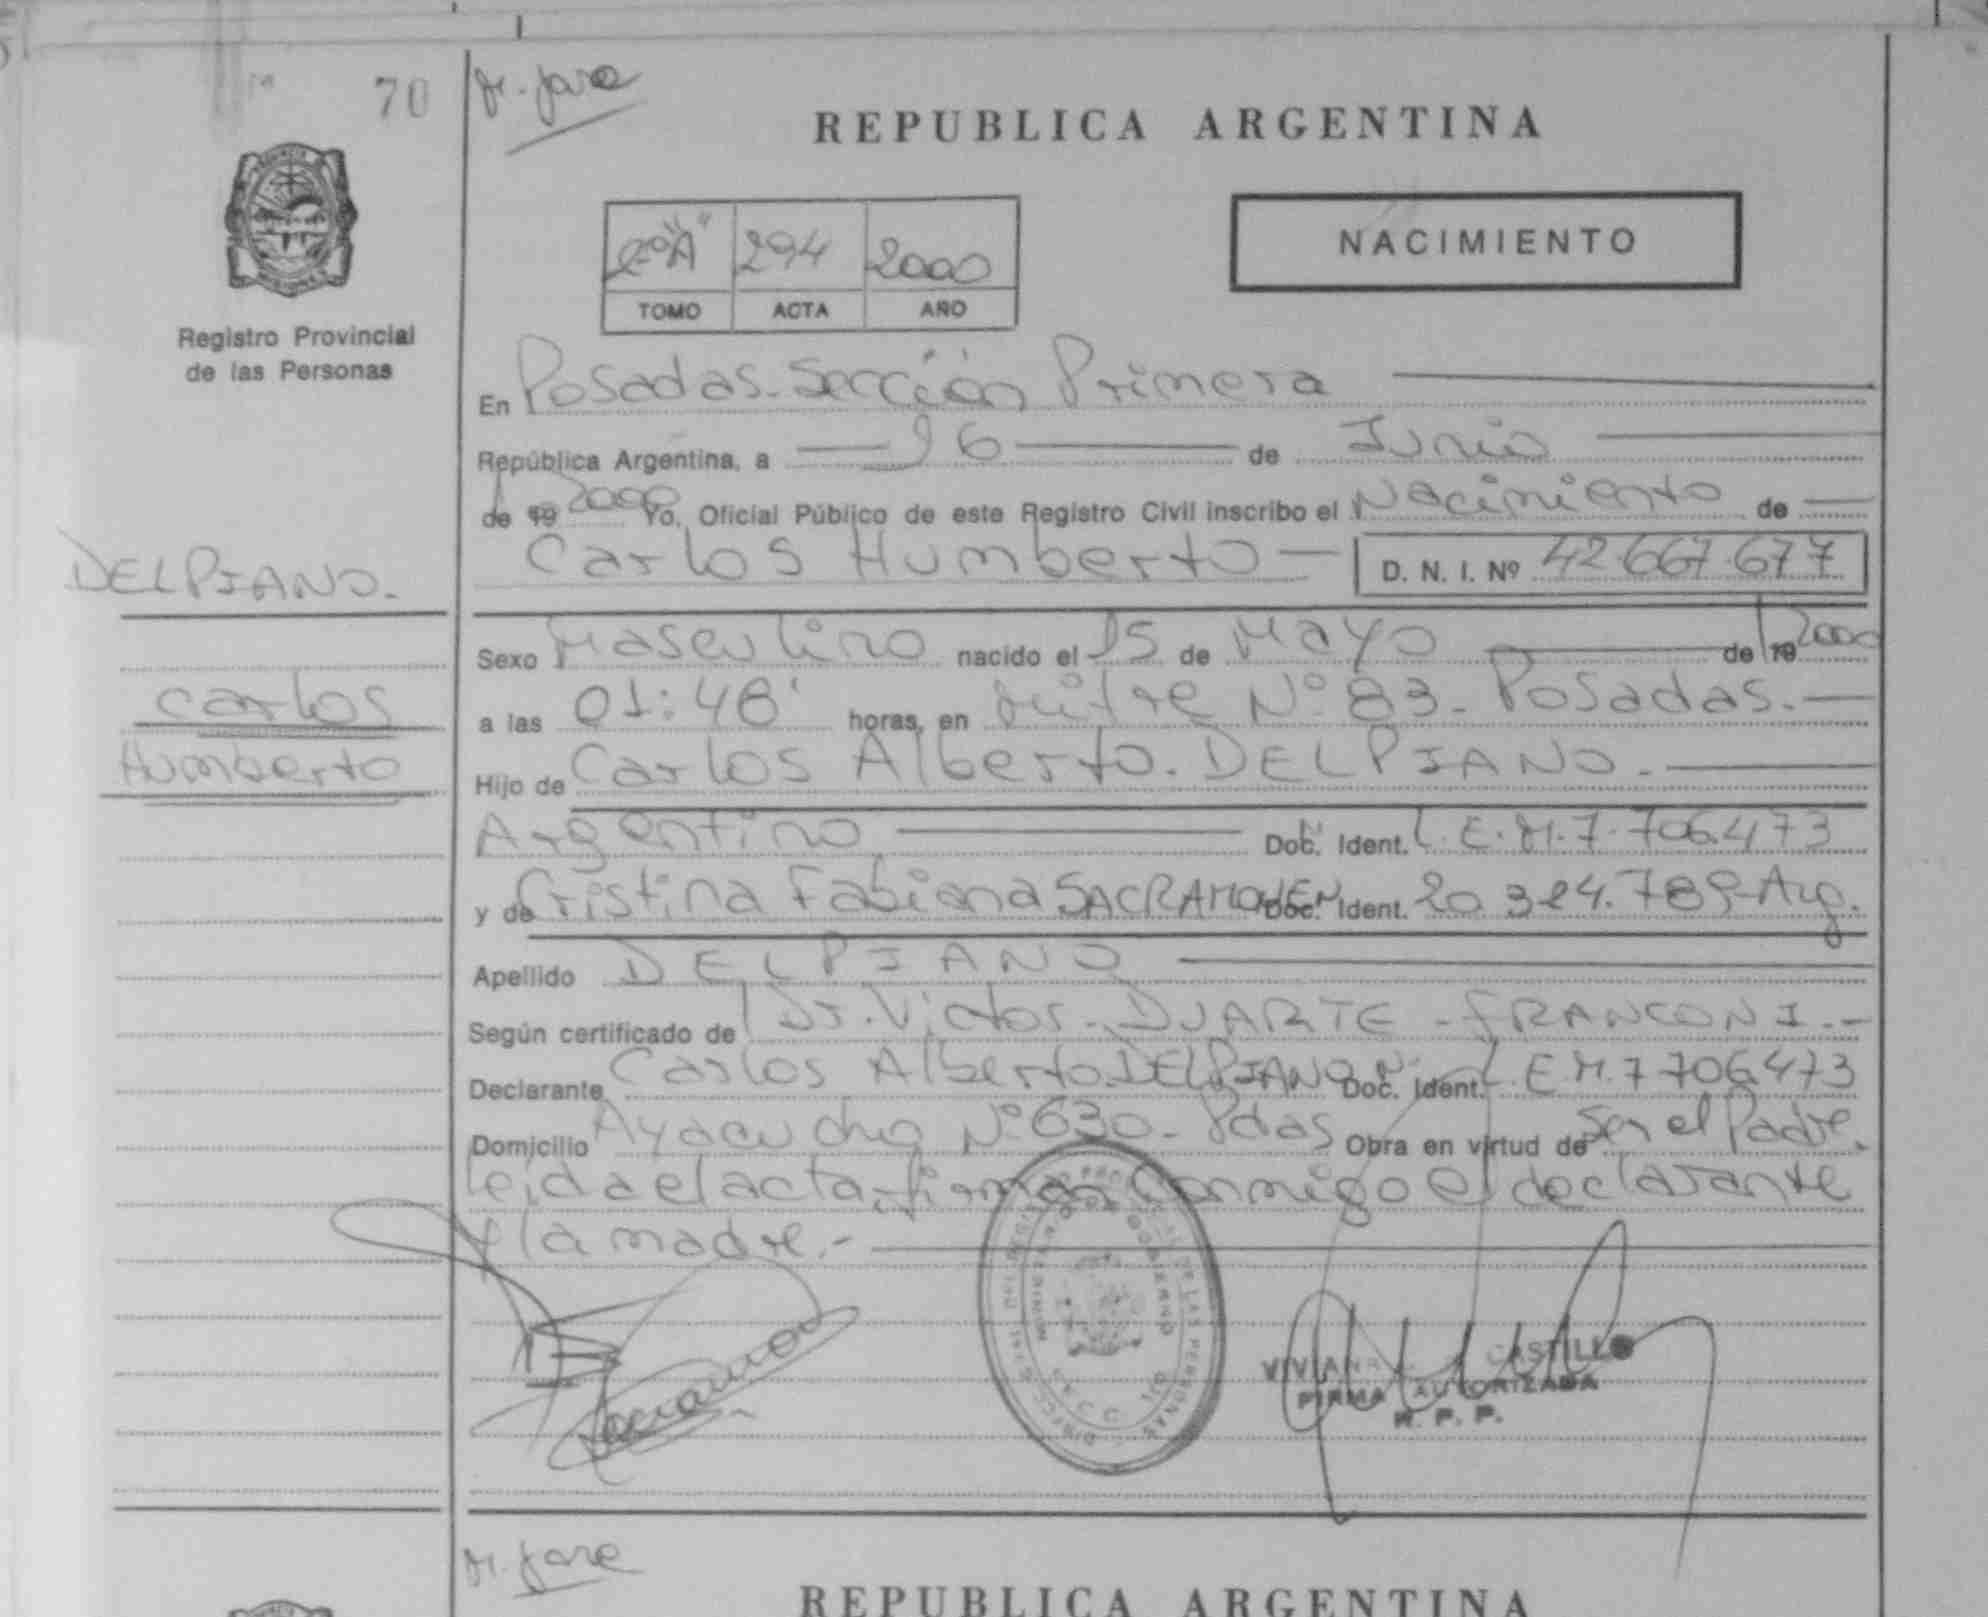 70
REPUBLICA ARGENTINA
2º "A" 294 2000
TOMO ACTA AÑO
NACIMIENTO
Registro Provincial
de las Personas
En Posadas - Sección Primera
República Argentina, a 16 de Junio
de 19 2000 Yo, Oficial Público de este Registro Civil inscribo el Nacimiento de
Carlos Humberto D. N. I. Nº 42.667.677
DELPIANO.
Carlos
Humberto
Sexo Masculino nacido el 15 de Mayo de 19 2000
a las 01:48' horas, en Mitre Nº 83 - Posadas. -
Hijo de Carlos Alberto. DELPIANO. -
Argentino Doc. Ident. L.E.M. 7.706.473
y de Cristina Fabiana SACRAMONEN Doc. Ident. 20.324.789 - Arg.
Apellido DELPIANO
Según certificado de Dr. Victor - DUARTE - FRANCONI. -
Declarante Carlos Alberto DELPIANO Nº Doc. Ident. L.E.M. 7706473
Domicilio Ayacucho Nº 630 - Pdas Obra en virtud de Ser el Padre.
leida el acta, firman conmigo el declarante
y la madre. -
VIVIANA CASTILLO
FIRMA AUTORIZADA
R. P. P.
REPUBLICA ARGENTINA